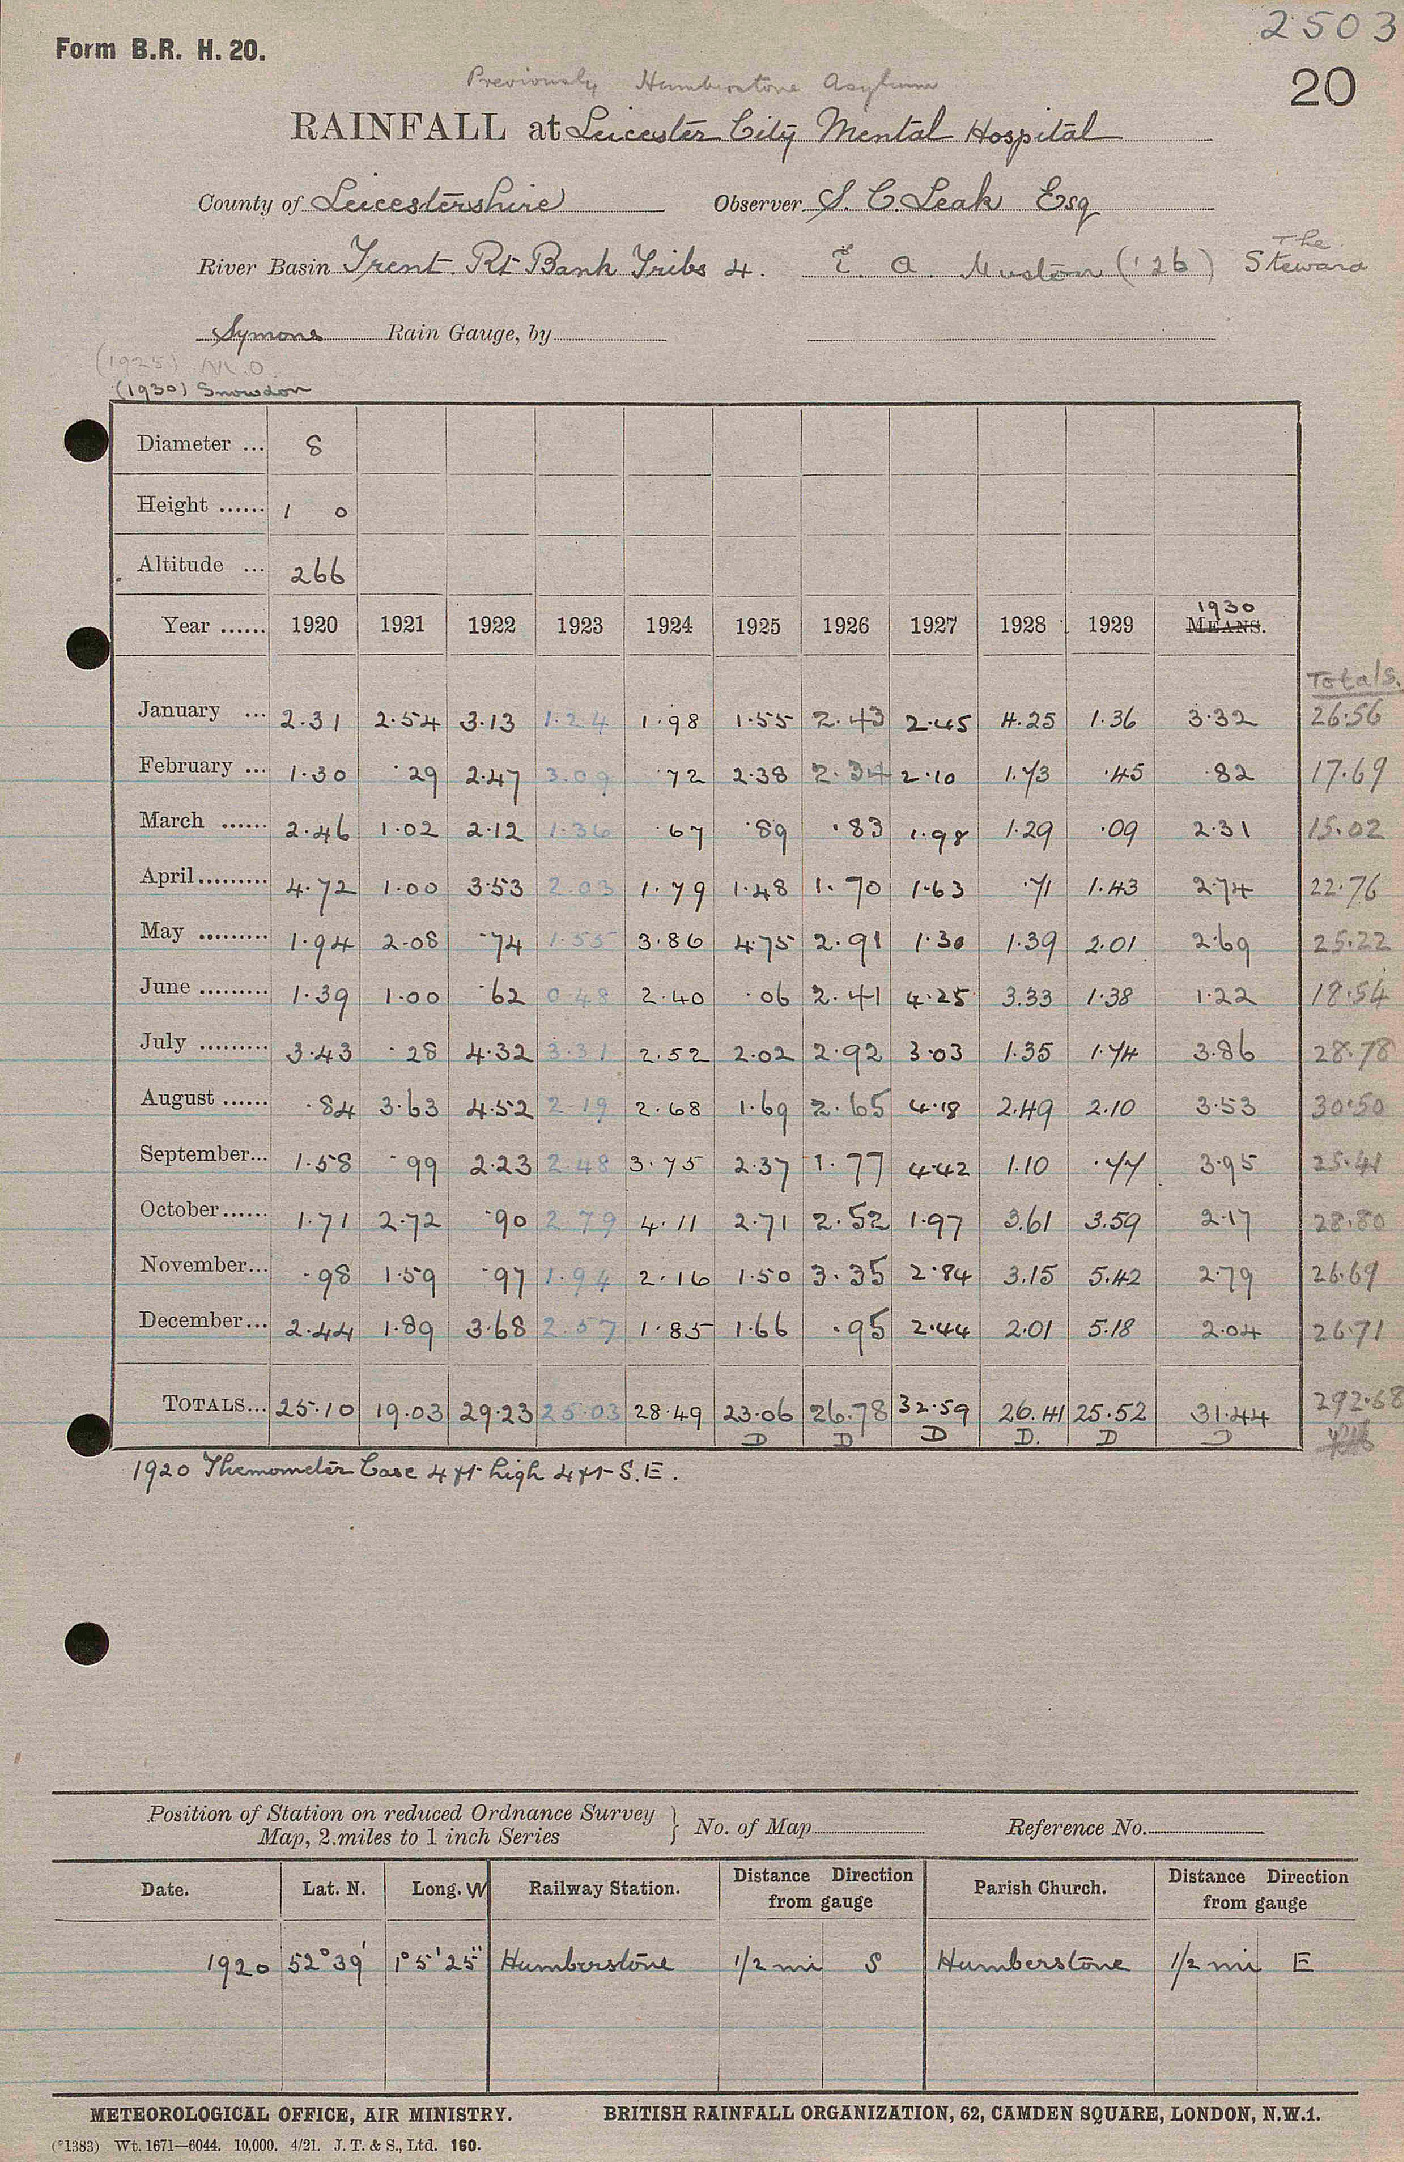 2503
Form B.R. H. 20.
20
Previously Humberstone Asylum
RAINFALL at Leicester City Mental Hospital
County of Leicestershire Observer S. C. Leak Esq
River Basin Trent Rt Bank Tribs 4. E. A. Muston ('26) The Steward
Symons Rain Gauge, by
(1925) M.O.
(1930) Snowdon
Diameter ... 8
Height ...... 1 0
Altitude ... 266
Year ...... 1920 1921 1922 1923 1924 1925 1926 1927 1928 1929 1930 MEANS.
Totals.
January ... 2.31 2.54 3.13 1.24 1.98 1.55 2.43 2.45 4.25 1.36 3.32 26.56
February ... 1.30 .29 2.47 3.09 .72 2.38 2.34 2.10 1.73 .45 .82 17.69
March ...... 2.46 1.02 2.12 1.36 .67 .89 .83 1.98 1.29 .09 2.31 15.02
April ......... 4.72 1.00 3.53 2.03 1.79 1.48 1.70 1.63 .71 1.43 2.74 22.76
May ......... 1.94 2.08 .74 1.55 3.86 4.75 2.91 1.30 1.39 2.01 2.69 25.22
June ......... 1.39 1.00 .62 0.48 2.40 .06 2.41 4.25 3.33 1.38 1.22 18.54
July ......... 3.43 .28 4.32 3.31 2.52 2.02 2.92 3.03 1.35 1.74 3.86 28.78
August ...... .84 3.63 4.52 2.19 2.68 1.69 2.65 4.18 2.49 2.10 3.53 30.50
September... 1.58 .99 2.23 2.48 3.75 2.37 1.77 4.42 1.10 .77 3.95 25.41
October...... 1.71 2.72 .90 2.79 4.11 2.71 2.52 1.97 3.61 3.59 2.17 28.80
November... .98 1.59 .97 1.94 2.16 1.50 3.35 2.84 3.15 5.42 2.79 26.69
December... 2.44 1.89 3.68 2.57 1.85 1.66 .95 2.44 2.01 5.18 2.04 26.71
TOTALS... 25.10 19.03 29.23 25.03 28.49 23.06 26.78 32.59 26.41 25.52 31.44 292.68
D D D D. D D
1920 Themometer Case 4 ft high 4 ft S.E.
Position of Station on reduced Ordnance Survey Map, 2 miles to 1 inch Series } No. of Map Reference No.
Date. Lat. N. Long. W Railway Station. Distance Direction from gauge Parish Church. Distance Direction from gauge
1920 52° 39' 1° 5' 25" Humberstone 1/2 mi S Humberstone 1/2 mi E
METEOROLOGICAL OFFICE, AIR MINISTRY. BRITISH RAINFALL ORGANIZATION, 62, CAMDEN SQUARE, LONDON, N.W.1.
(*1383) Wt. 1671—6044. 10,000. 4/21. J. T. & S., Ltd. 160.